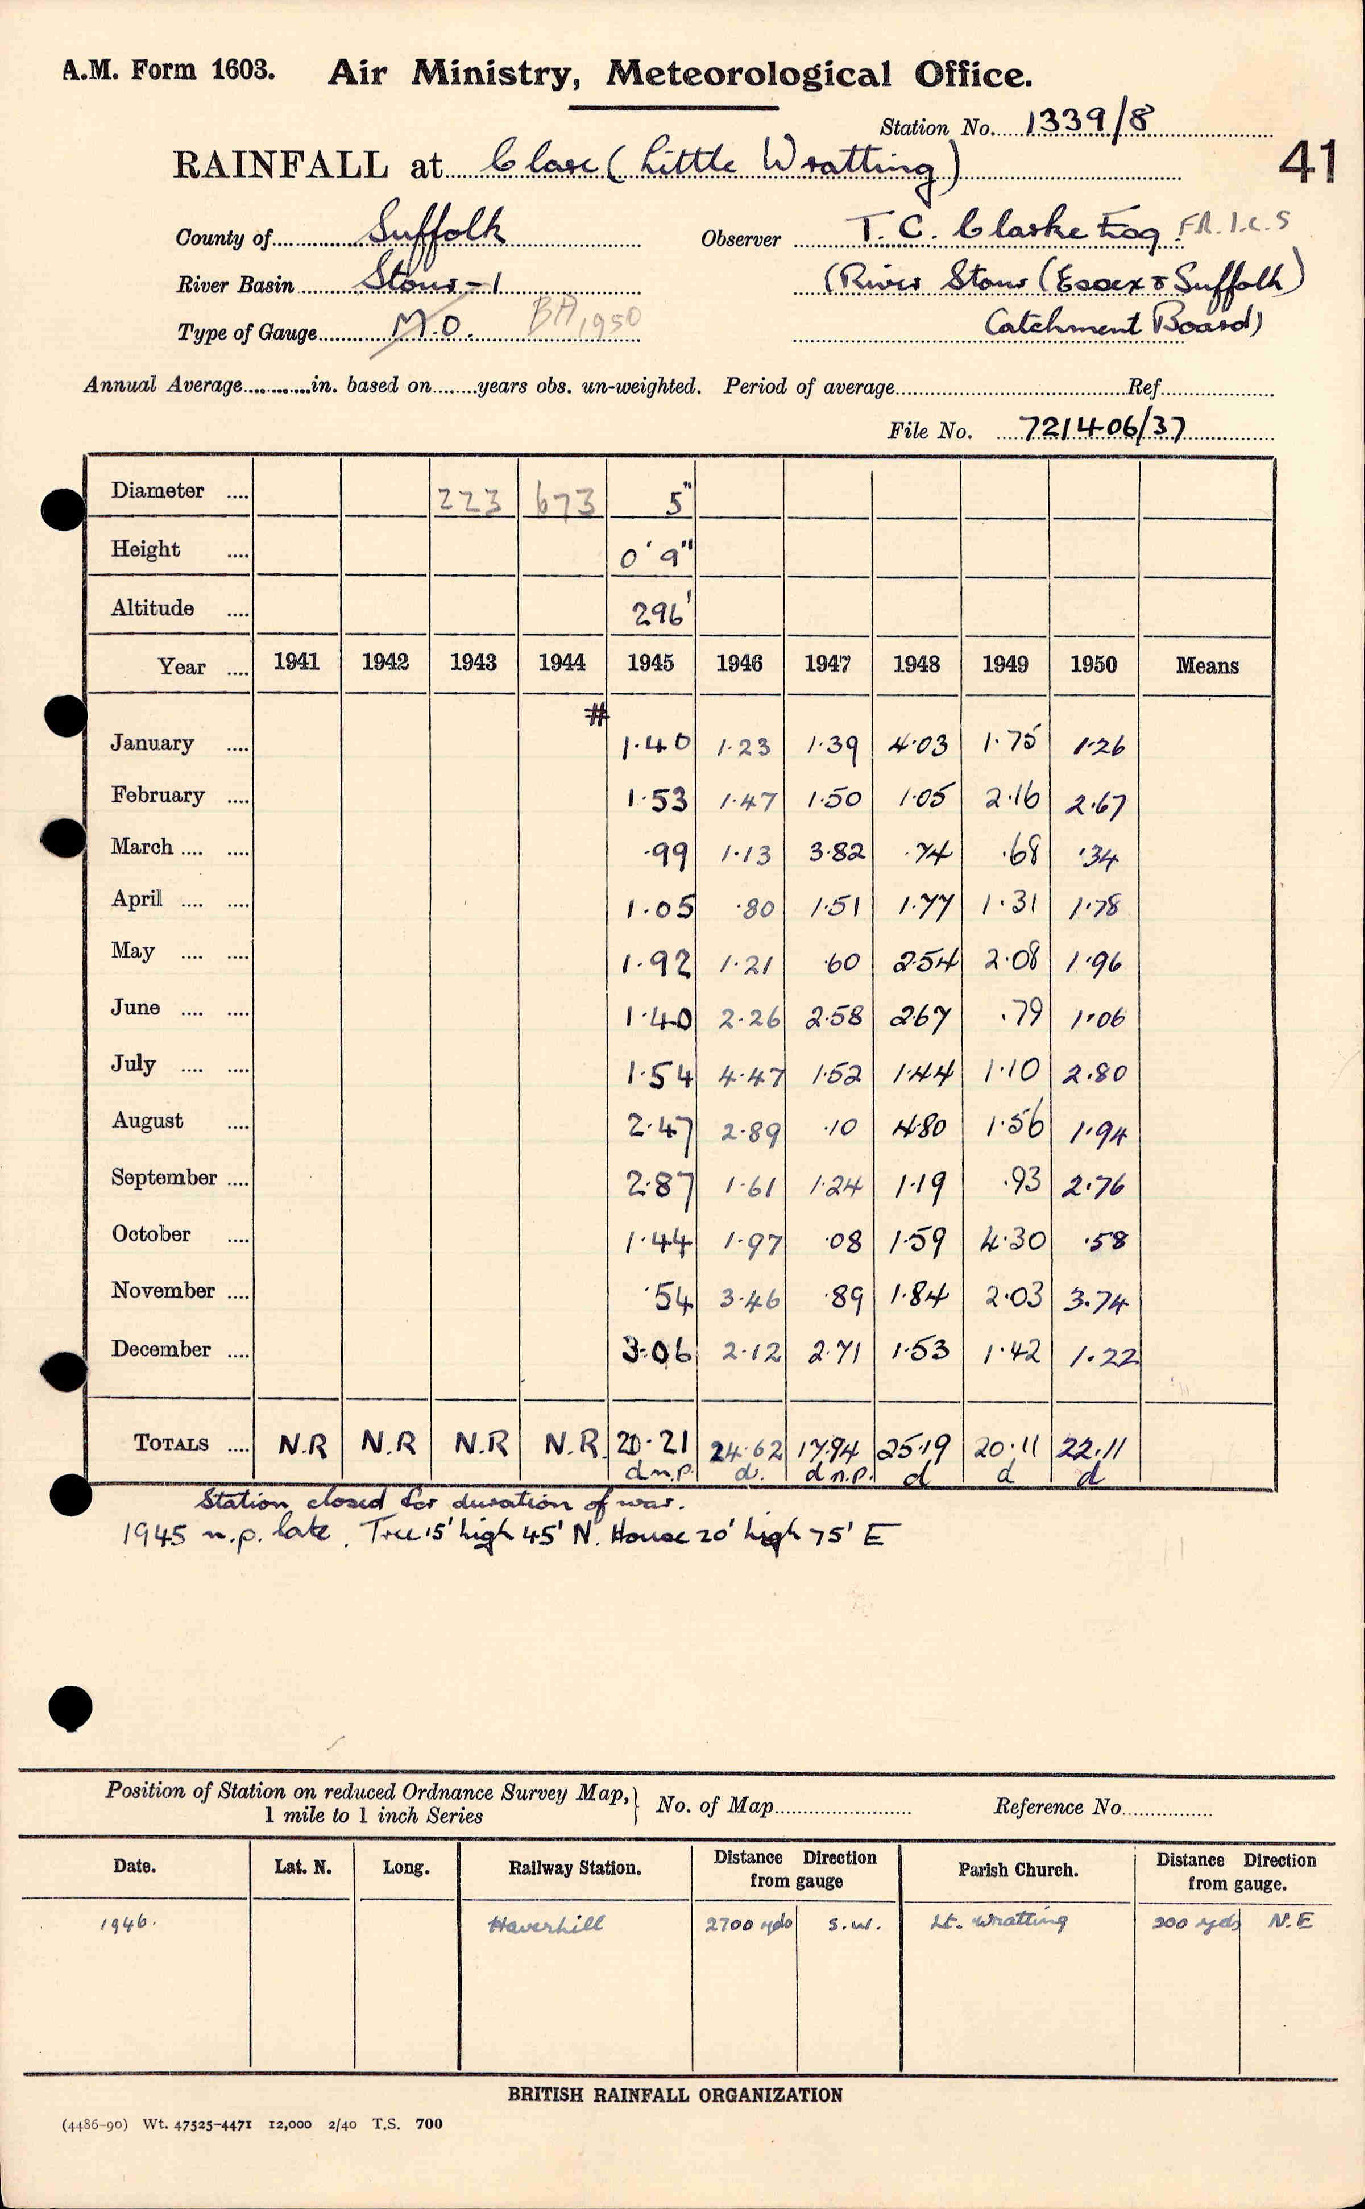 A.M. Form 1603. Air Ministry, Meteorological Office.
Station No. 1339/8
41
RAINFALL at Clare (Little Wratting)
County of Suffolk Observer T. C. Clarke Esq. F.R.I.C.S
River Basin Stour-1 (River Stour (Essex & Suffolk)
Type of Gauge M.O. BA 1950 Catchment Board)
Annual Average............in. based on.......years obs. un-weighted. Period of average..........Ref..........
File No. 721406/37
Diameter .... 223 673 5"
Height .... 0' 9"
Altitude .... 296'
Year .... 1941 1942 1943 1944 1945 1946 1947 1948 1949 1950 Means
#
January .... 1.40 1.23 1.39 4.03 1.75 1.26
February .... 1.53 1.47 1.50 1.05 2.16 2.67
March .... .... .99 1.13 3.82 .74 .68 .34
April .... .... 1.05 .80 1.51 1.77 1.31 1.78
May .... .... 1.92 1.21 .60 2.54 2.08 1.96
June .... .... 1.40 2.26 2.58 2.67 .79 1.06
July .... .... 1.54 4.47 1.52 1.44 1.10 2.80
August .... 2.47 2.89 .10 4.80 1.56 1.94
September .... 2.87 1.61 1.24 1.19 .93 2.76
October .... 1.44 1.97 .08 1.59 4.30 .58
November .... .54 3.46 .89 1.84 2.03 3.74
December .... 3.06 2.12 2.71 1.53 1.42 1.22
TOTALS .... N.R N.R N.R N.R. 20.21 24.62 17.94 25.19 20.11 22.11
d n.p. d. d n.p. d d d
Station closed for duration of war.
1945 n.p. late. Tree 15' high 45' N. House 20' high 75' E
Position of Station on reduced Ordnance Survey Map,} No. of Map.......... Reference No..........
1 mile to 1 inch Series
Date. Lat. N. Long. Railway Station. Distance Direction from gauge Parish Church. Distance Direction from gauge.
1946. Haverhill 2700 yds S.W. Lt. Wratting 300 yds N.E
BRITISH RAINFALL ORGANIZATION
(4486-90) Wt. 47525-4471 12,000 2/40 T.S. 700